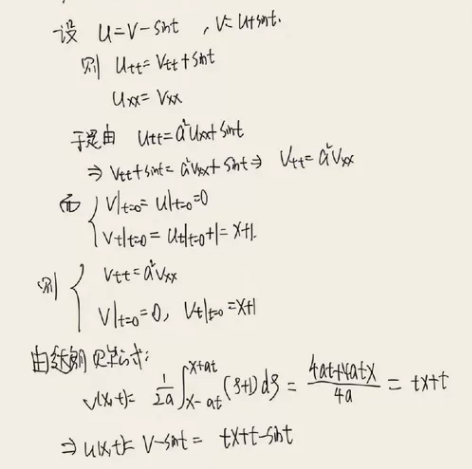 设 u=v-sint , v=u+sint.
则 utt=vtt+sint
uxx=vxx
于是由 utt=a²uxx+sint
⇒ vtt+sint=a²vxx+sint ⇒ vtt=a²vxx
而 { v|t=0=u|t=0=0
vt|t=0=ut|t=0+1=x+1.
则 { vtt=a²vxx
v|t=0=0, vt|t=0=x+1
由达朗贝尔公式:
v(x,t)= 1/2a ∫x-at^x+at (ξ+1)dξ = 4at+4atx/4a = tx+t
⇒ u(x,t)= v-sint = tx+t-sint